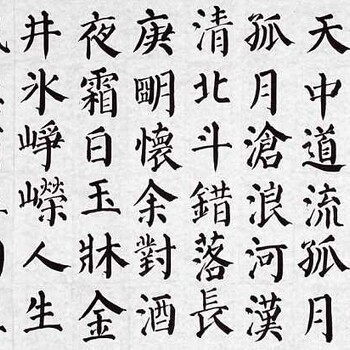 天中道流孤月
孤月滄浪河漢
清北斗錯落長
庚明懷余對酒
夜霜白玉牀金
井氷崢嶸人生